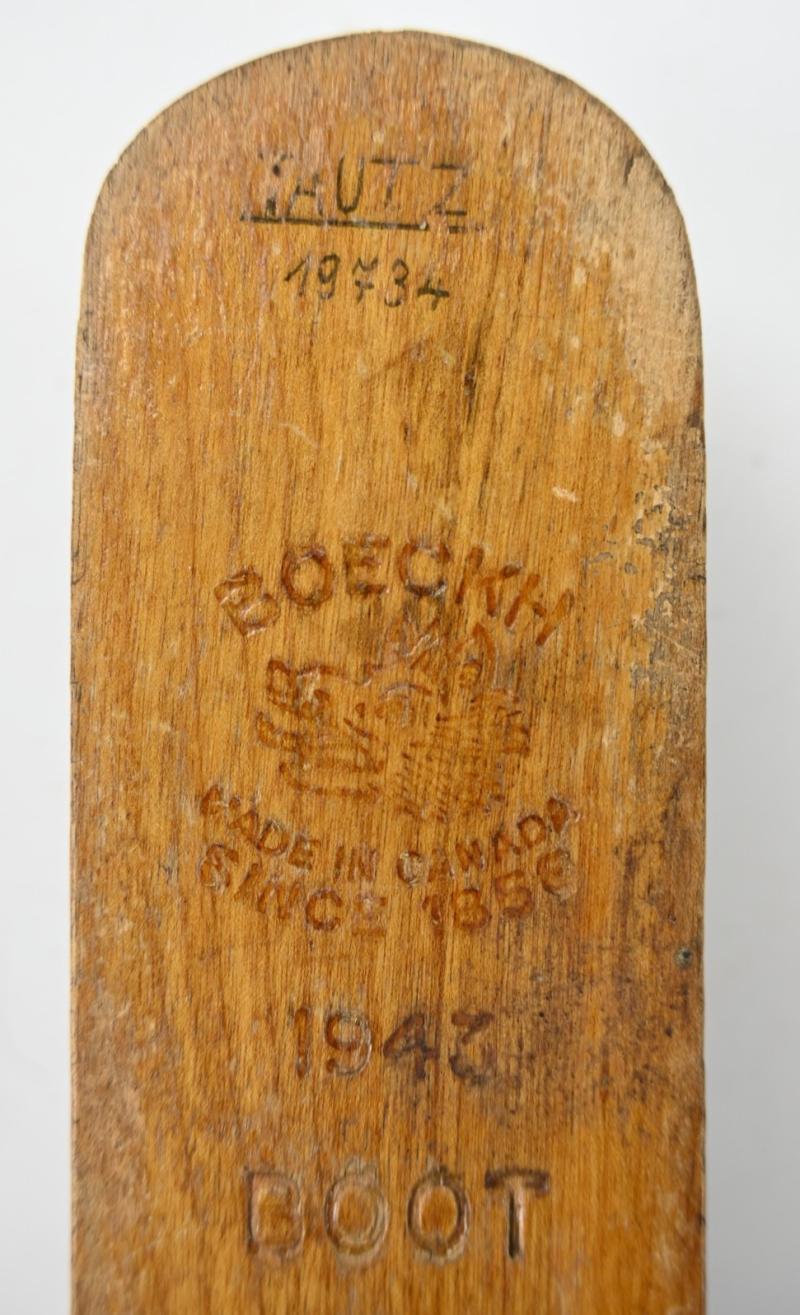 KAUTZ
19734
BOECKH
MADE IN CANADA
SINCE 1856
1943
BOOT